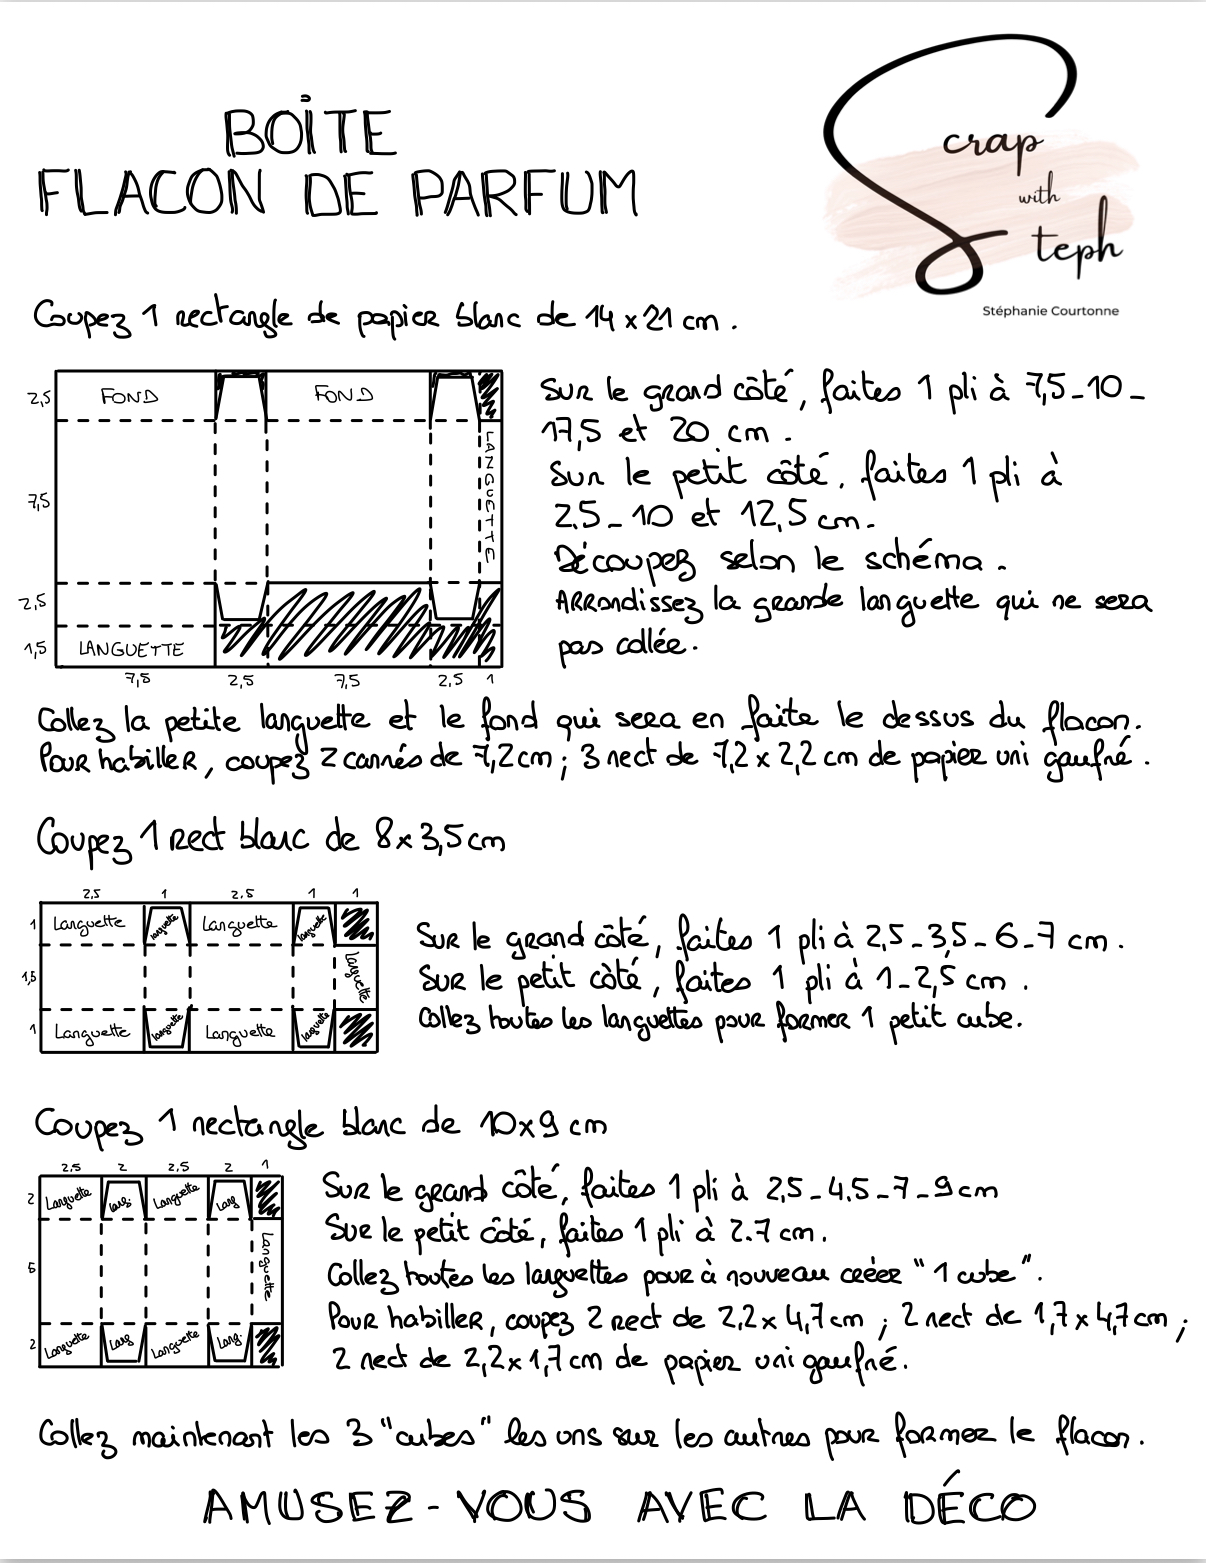 BOÎTE
FLACON DE PARFUM
Scrap
with
Steph
Stéphanie Courtonne
Coupez 1 rectangle de papier blanc de 14 x 21 cm.
2,5
FOND
FOND
7,5
LANGUETTE
2,5
1,5
LANGUETTE
7,5
2,5
7,5
2,5
1
Sur le grand côté, faites 1 pli à 7,5 - 10 -
17,5 et 20 cm.
Sur le petit côté, faites 1 pli à
2,5 - 10 et 12,5 cm.
Découpez selon le schéma.
Arrondissez la grande languette qui ne sera
pas collée.
Collez la petite languette et le fond qui sera en faite le dessus du flacon.
Pour habiller, coupez 2 carrés de 7,2 cm ; 3 rect de 7,2 x 2,2 cm de papier uni gaufré.
Coupez 1 Rect blanc de 8 x 3,5 cm
2,5
1
2,5
1
1
1
Languette
languette
Languette
languette
1,5
Languette
1
Languette
languette
Languette
languette
Sur le grand côté, faites 1 pli à 2,5 - 3,5 - 6 - 7 cm.
Sur le petit côté, faites 1 pli à 1 - 2,5 cm.
Collez toutes les languettes pour former 1 petit cube.
Coupez 1 rectangle blanc de 10 x 9 cm
2,5
2
2,5
2
1
2
Languette
Lang.
Languette
Lang
5
Languette
2
Languette
Lang
Languette
Lang
Sur le grand côté, faites 1 pli à 2,5 - 4,5 - 7 - 9 cm
Sur le petit côté, faites 1 pli à 2.7 cm.
Collez toutes les languettes pour à nouveau créer "1 cube".
Pour habiller, coupez 2 rect de 2,2 x 4,7 cm ; 2 rect de 1,7 x 4,7 cm ;
2 rect de 2,2 x 1,7 cm de papier uni gaufré.
Collez maintenant les 3 "cubes" les uns sur les autres pour former le flacon.
AMUSEZ-VOUS AVEC LA DÉCO